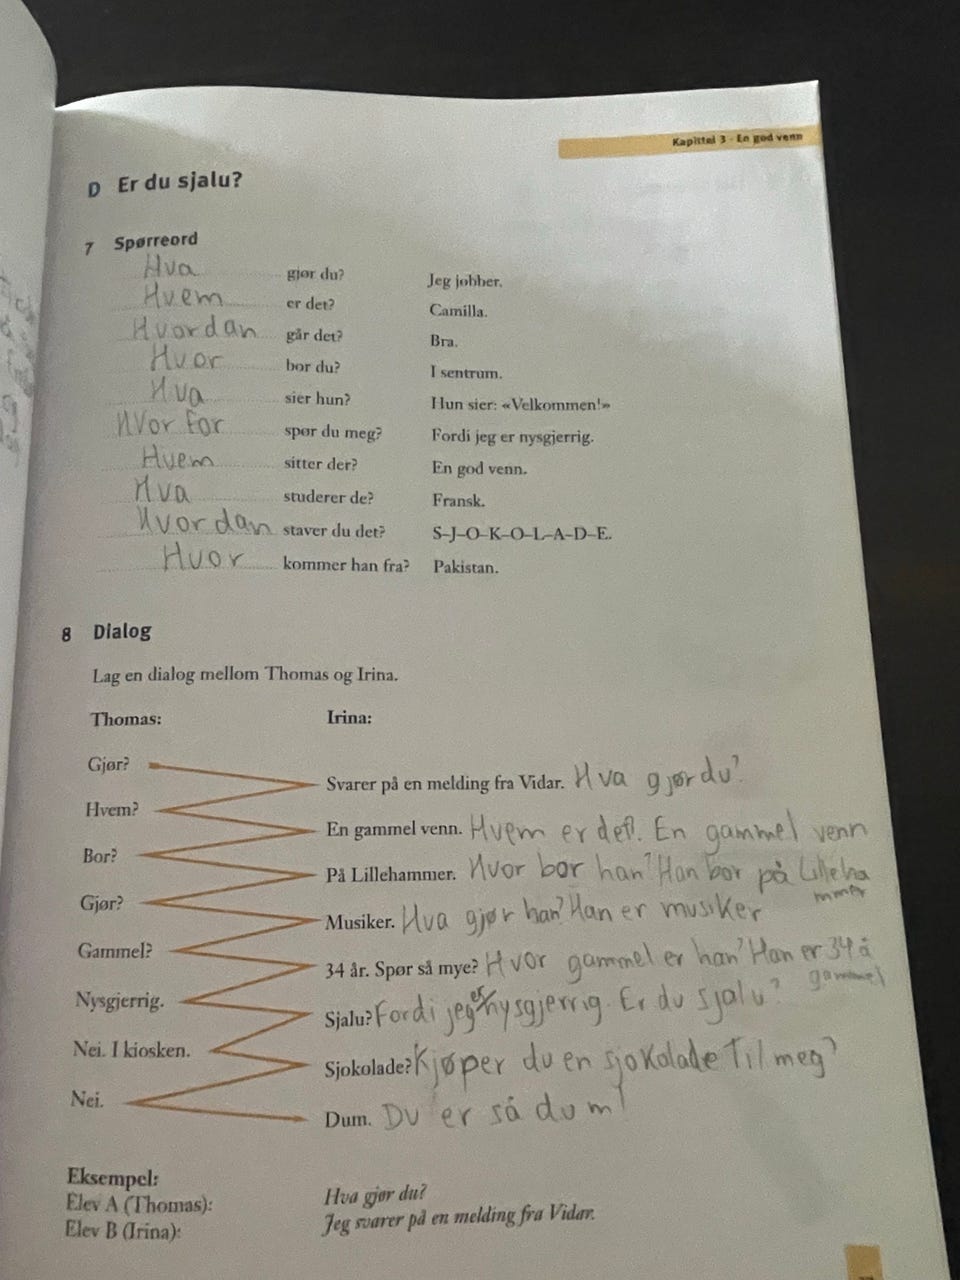 Kapittel 3 - En god venn
D Er du sjalu?
7 Spørreord
Hva gjør du? Jeg jobber.
Hvem er det? Camilla.
Hvordan går det? Bra.
Hvor bor du? I sentrum.
Hva sier hun? Hun sier: «Velkommen!»
Hvor for spør du meg? Fordi jeg er nysgjerrig.
Hvem sitter der? En god venn.
Hva studerer de? Fransk.
Hvordan staver du det? S–J–O–K–O–L–A–D–E.
Hvor kommer han fra? Pakistan.
8 Dialog
Lag en dialog mellom Thomas og Irina.
Thomas: Irina:
Gjør?
Svarer på en melding fra Vidar. Hva gjør du?
Hvem?
En gammel venn. Hvem er det. En gammel venn
Bor?
På Lillehammer. Hvor bor han? Han bor på Lilleha
mmer
Gjør?
Musiker. Hva gjør han? Han er musiker
Gammel?
34 år. Spør så mye? Hvor gammel er han? Han er 34 å
gammel
Nysgjerrig.
Sjalu? Fordi jeg er nysgjerrig. Er du sjalu?
Nei. I kiosken.
Sjokolade? Kjøper du en sjokolade til meg?
Nei.
Dum. Du er så dum!
Eksempel:
Elev A (Thomas): Hva gjør du?
Elev B (Irina): Jeg svarer på en melding fra Vidar.